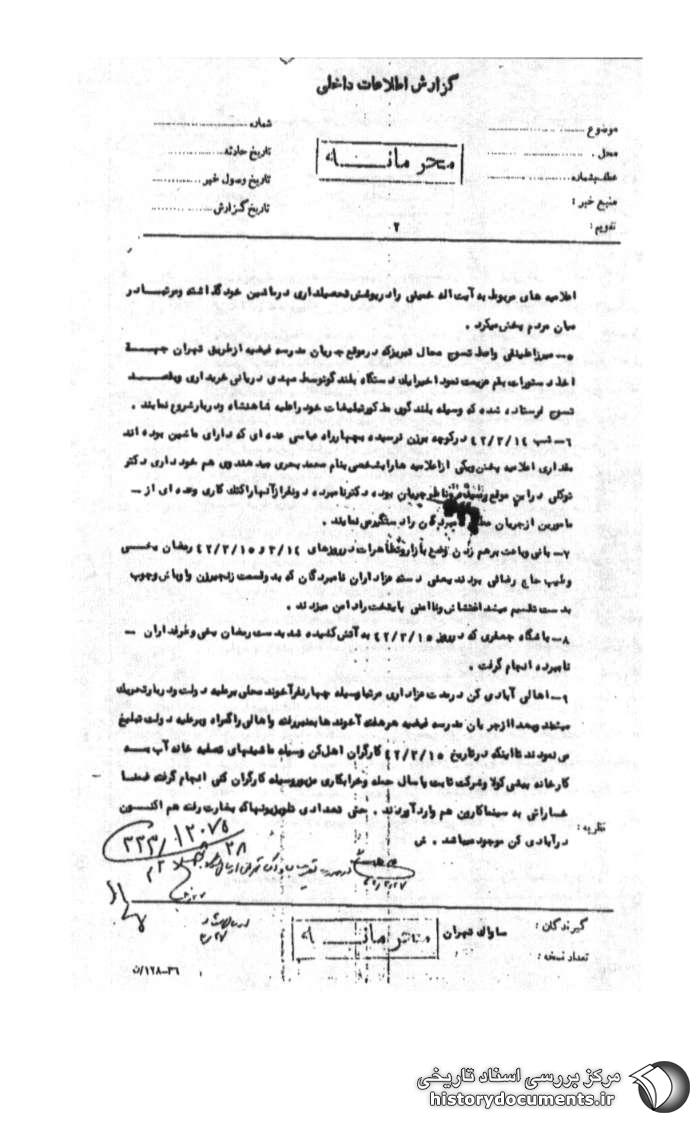 گزارش اطلاعات داخلی
موضوع
محل
عطف بشماره
منبع خبر :
تقویم :
شماره
تاریخ حادثه
تاریخ وصول خبر
تاریخ گزارش
محرمانــــه
۲
اعلامیه های مربوط به آیت اله خمینی را در پوشش تحصیلداری در ماشین خود گذاشته و مرتبا در
میان مردم پخش میکرد .
۵- میرزا طیفی واعظ تسوج محال تبریز که در موقع جریان مدرسه فیضیه از طریق تهران جهة
اخذ دستورات بقم عزیمت نمود اخیرا یک دستگاه بلندگو توسط مهدی دریانی خریداری و بقصد
تسوج فرستاده شده که وسیله بلندگوی مذکور تبلیغات خود را علیه شاهنشاه و دربار شروع نمایند .
۶- شب ۴۲/۳/۱۴ در کوچه برزن نرسیده بچهارراه عباسی عده ای که دارای ماشین بوده اند
مقداری اعلامیه پخش و یکی از اعلامیه ها را بشخصی بنام محمد بحری میدهند وی هم خودداری دکتر
توکلی در این موقع رسیده و ناظر جریان بوده دکتر نامبرده دو نفر از آنها را کتک کاری و عده ای از -
مامورین از جریان نامبردگان را دستگیر می نمایند .
۷- بانی و باعث برهم زدن وضع بازار و تظاهرات در روزهای ۳/۱۴ و ۴۲/۳/۱۵ رمضان یخسی
و طیب حاج رضائی بودند یعنی دسته عزاداران نامبردگان که بدو قسمت زنجیرزن و اوباش و چوب
بدست تقسیم میشد اغتشاش و ناامنی پایتخت را دامن میزدند .
۸- باشگاه جعفری که در روز ۴۲/۳/۱۵ به آتش کشیده شد بدست رمضان یخی و طرفداران -
نامبرده انجام گرفت .
۹- اهالی آبادی کن در مدت عزاداری مرتبا وسیله چهار نفر آخوند محلی برعلیه دولت و دربار تحریک
میشدند و بعد از جریان مدرسه فیضیه هر هفته آخوندها بمنبر رفته و اهالی را گمراه و برعلیه دولت تبلیغ
می نمودند تا اینکه در تاریخ ۴۲/۳/۱۵ کارگران اهل کن وسیله ماشینهای تصفیه خانه آب بـــه
کارخانه پپسی کولا و شرکت ثابت پاسال حمله و خرابکاری مزبور وسیله کارگران کنی انجام گرفته ضمنا
خساراتی به سینما کارون هم وارد آوردند . حتی تعدادی تلویزیونها که بغارت رفته هم اکنون
در آبادی کن موجود میباشد . ش
نظریه :
گیرندگان :
ساواک تهران
تعداد نسخه :
محرمانــــه
۳۶-۱۲۸/ن
مرکز بررسی اسناد تاریخی
historydocuments.ir